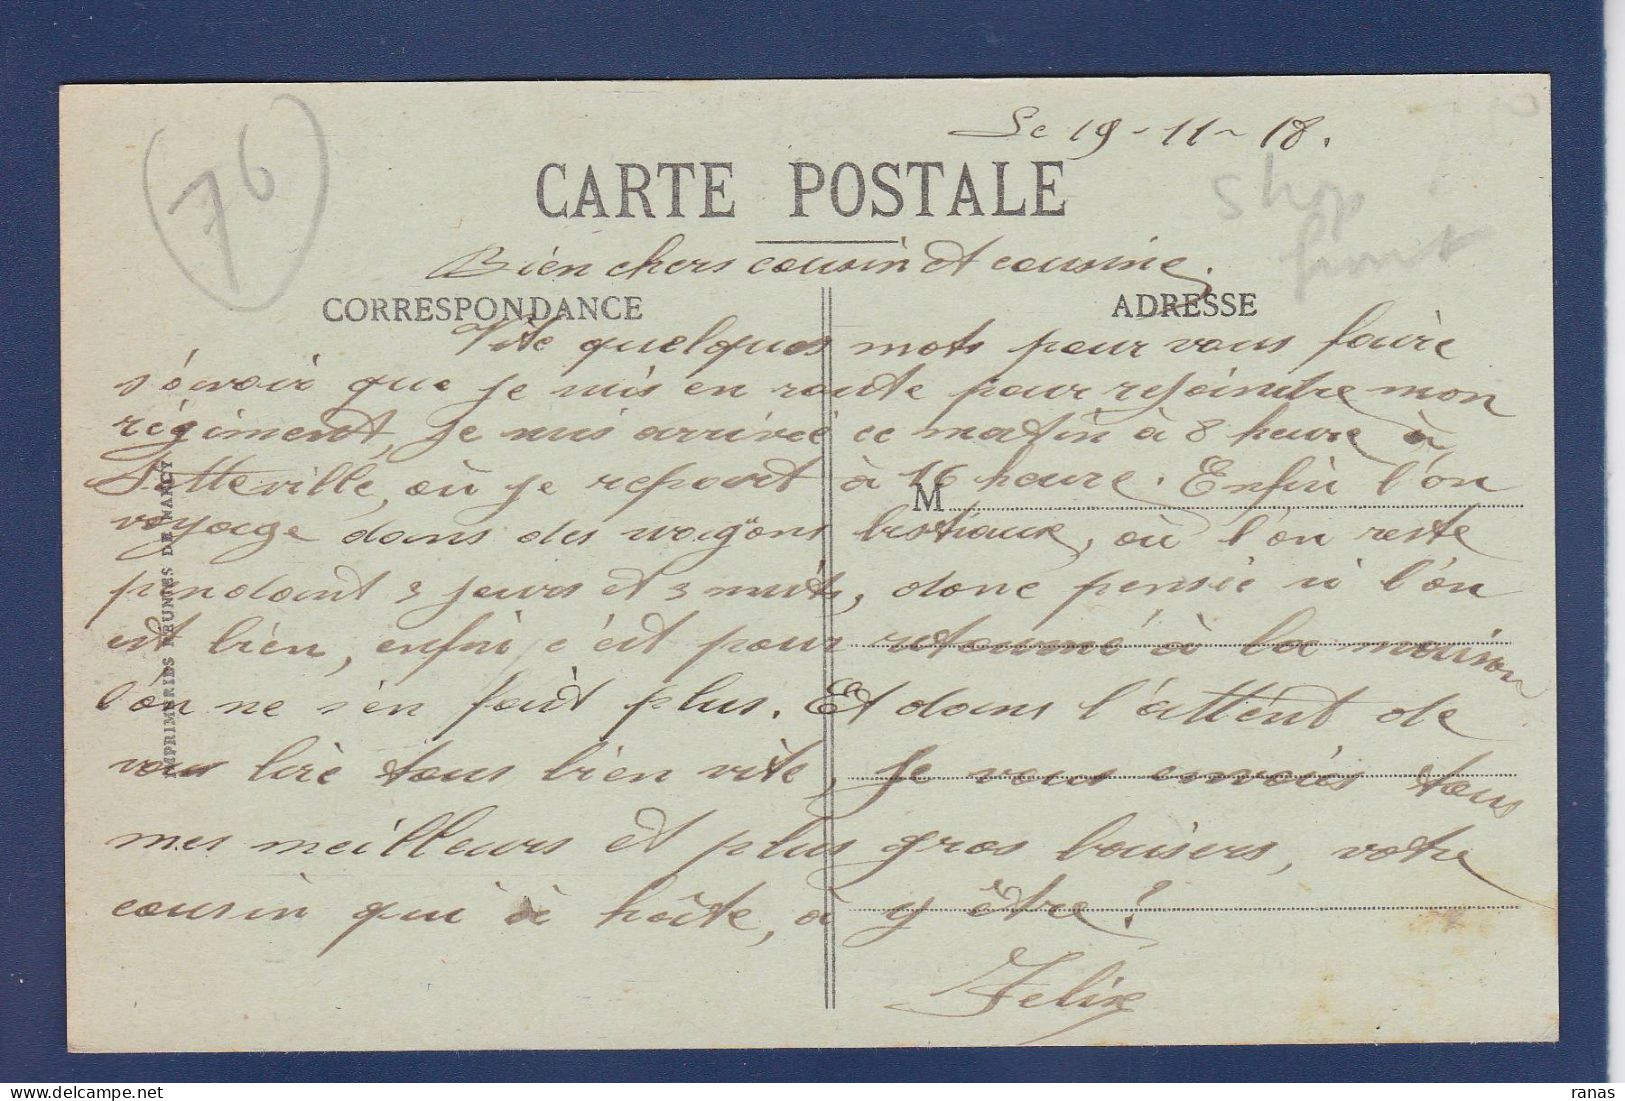 Le 19-11-18.
76
CARTE POSTALE
shop
Bien chers cousin et cousine.
CORRESPONDANCE
ADRESSE
Vite quelques mots pour vous faire
s'avoir que je suis en route pour rejoindre mon
régiment, je suis arrivée ce matin à 8 heure à
Sotteville, où je repart à 16 heure. Enfin l'on
M
voyage dans des wagons bestiaux, où l'on reste
pendant 3 jours et 3 nuits, donc pensée si l'on
est bien, enfin c'est pour retourné à la maison
l'on ne s'en fait plus. Et dans l'attent de
vous lire tous bien vite, je vous envois tous
mes meilleurs et plus gros baisers, votre
cousin qui à hâte, à y être!
Felix
IMPRIMERIES REUNIES DE NANCY
ranas